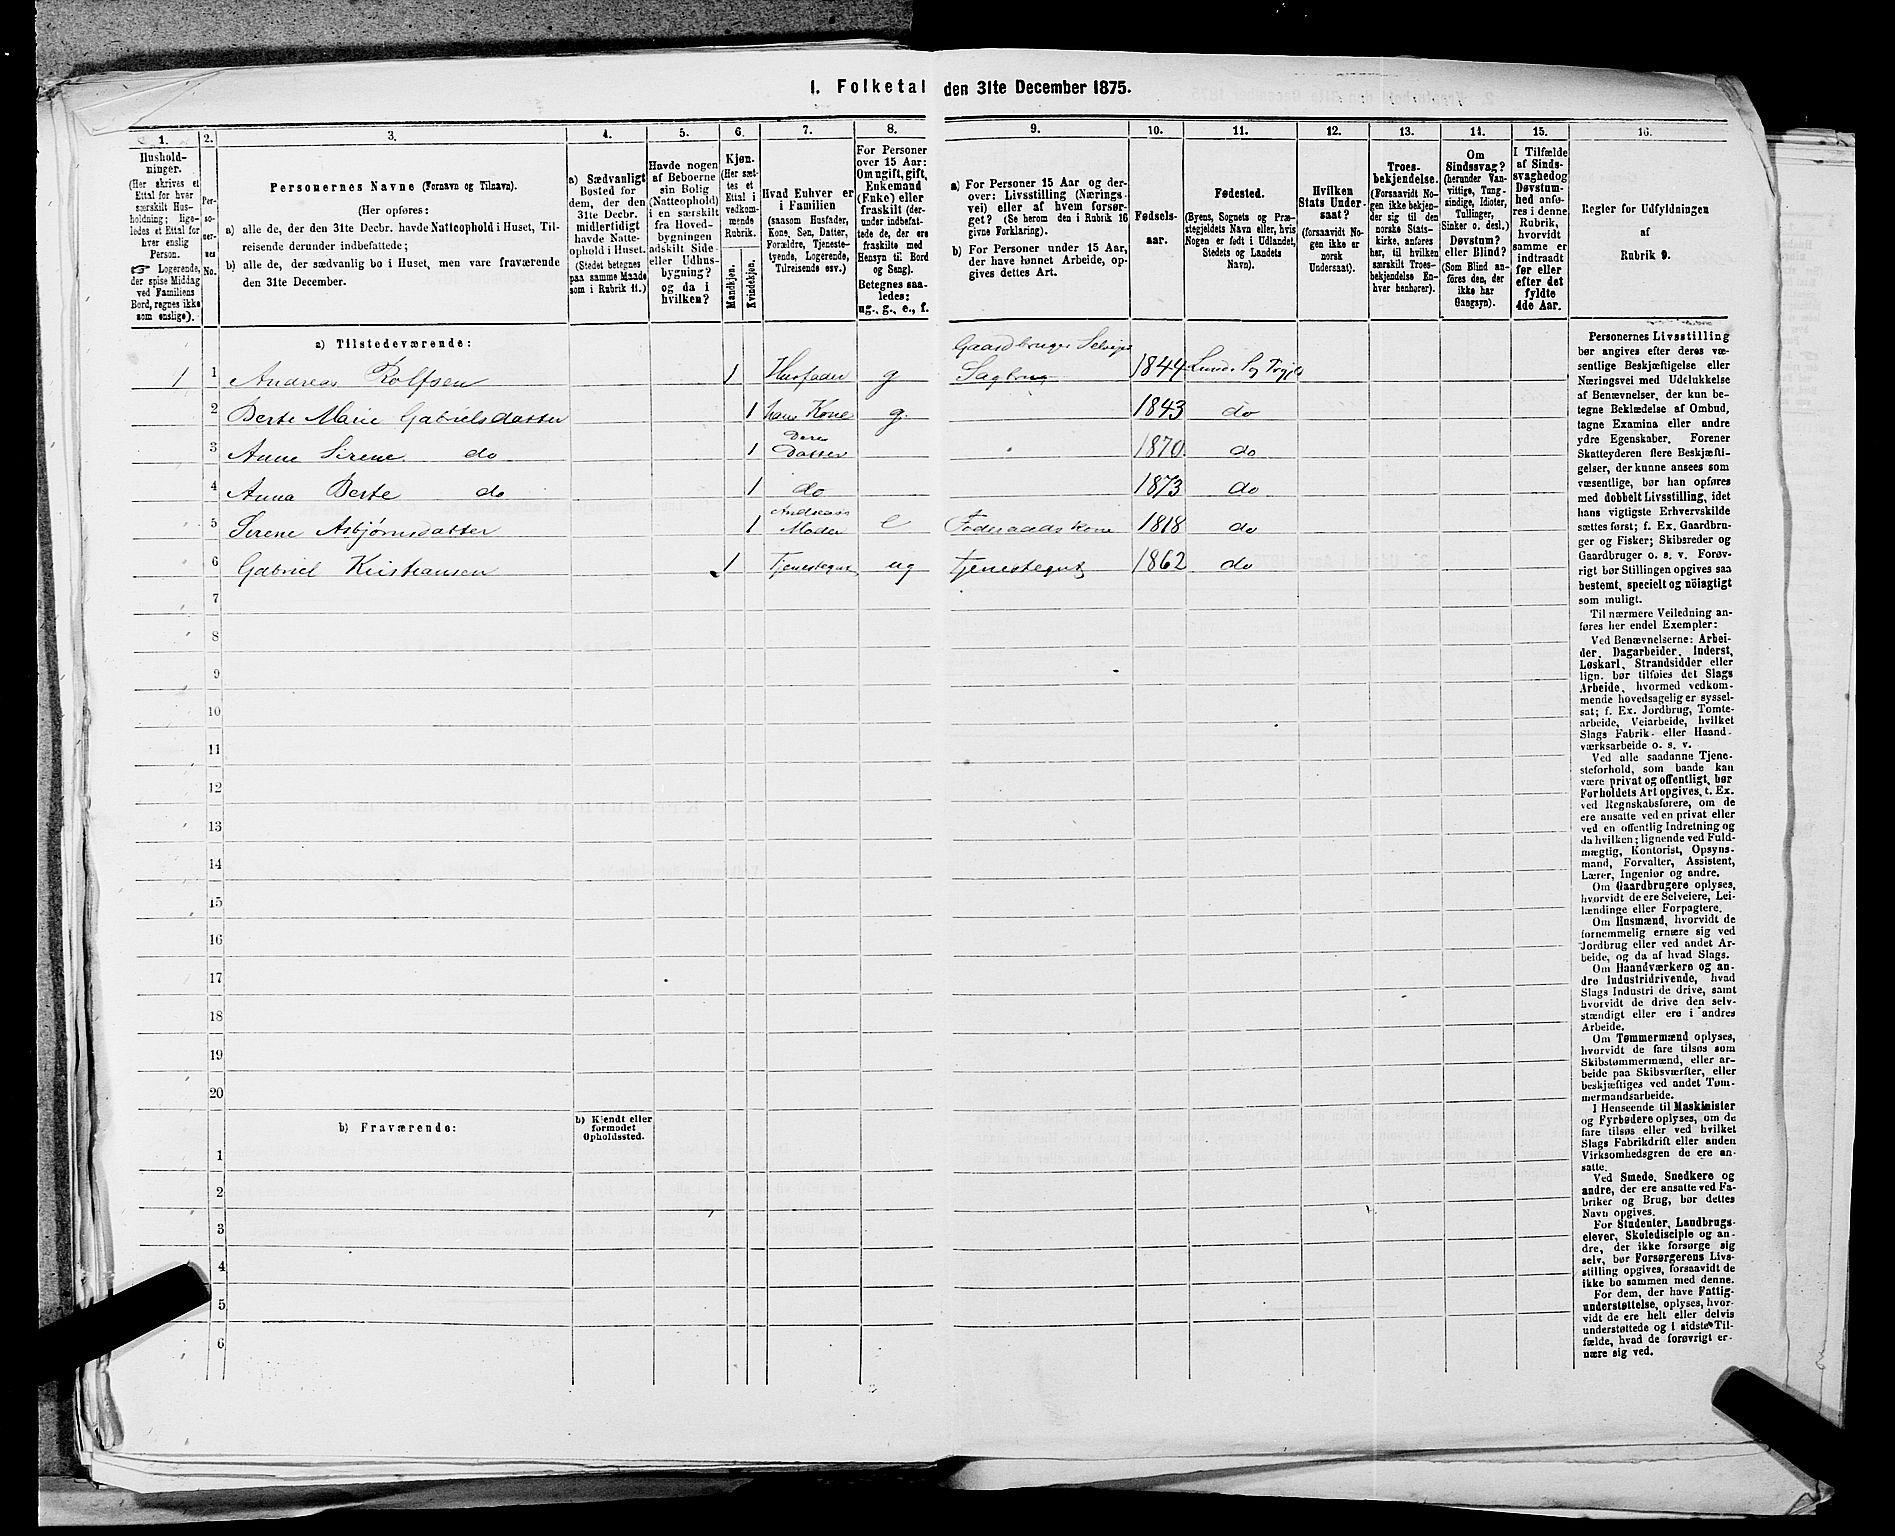 1. Folketal den 31te December 1875.
1. 2. 3. 4. 5. 6. 7. 8. 9. 10. 11. 12. 13. 14. 15. 16.
Hushold-
ninger.
(Her skrives et
Ettal for hver
særskilt Hus-
holdning; lige-
ledes et Ettal for
hver enslig
Person.
☞ Logerende,
der spise Middag
ved Familiens
Bord, regnes ikke
som enslige).
Per-
so-
ner-
nes
No.
Personernes Navne (Fornavn og Tilnavn).
(Her opføres:
a) alle de, der den 31te Decbr. havde Natteophold i Huset, Til-
reisende derunder indbefattede;
b) alle de, der sædvanlig bo i Huset, men vare fraværende
den 31te December.
a) Sædvanligt
Bosted for
dem, der den
31te Decbr.
midlertidigt
havde Natte-
ophold i Huset.
(Stedet betegnes
paa samme Maade
som i Rubrik 11.)
Havde nogen
af Beboerne
sin Bolig
(Natteophold)
i en særskilt
fra Hoved-
bygningen
adskilt Side-
eller Udhus-
bygning?
og da i
hvilken?
Kjøn.
(Her sæt-
tes et
Ettal i
vedkom-
mende
Rubrik.
Mandkjøn.
Kvindekjøn.
Hvad Enhver er
i Familien
(saasom Husfader,
Kone, Søn, Datter,
Forældre, Tjeneste-
tyende, Logerende,
Tilreisende osv.)
For Personer
over 15 Aar:
Om ugift, gift,
Enkemand
(Enke) eller
fraskilt (der-
under indbefat-
tede de, der ere
fraskilte med
Hensyn til Bord
og Seng).
Betegnes saa-
ledes:
ug., g., e., f.
a) For Personer 15 Aar og der-
over: Livsstilling (Nærings-
vei) eller af hvem forsør-
get? (Se herom den i Rubrik 16
givne Forklaring).
b) For Personer under 15 Aar,
der have lønnet Arbeide, op-
gives dettes Art.
Fødsels-
aar.
Fødested.
(Byens, Sognets og Præ-
stegjeldets Navn eller, hvis
Nogen er født i Udlandet,
Stedets og Landets
Navn).
Hvilken
Stats Under-
saat?
(forsaavidt No-
gen ikke er
norsk
Undersaat).
Troes-
bekjendelse.
(Forsaavidt No-
gen ikke bekjen-
der sig til den
norske Stats-
kirke, anføres
her, til hvilken
særskilt Troes-
bekjendelse En-
hver henhører).
Om
Sindssvag?
(herunder Van-
vittige, Tung-
sindige, Idioter,
Tullinger,
Sinker o. desl.)
Døvstum?
eller Blind?
(Som Blind an-
føres den, der
ikke har
Gangsyn).
I Tilfælde
af Sinds-
svaghed og
Døvstum-
hed anfø-
res i denne
Rubrik,
hvorvidt
samme er
indtraadt
før eller
efter det
fyldte
4de Aar.
Regler for Udfyldningen
af
Rubrik 9.
a) Tilstedeværende:
Gaardbruger Selveje
1 1 Andreas Rolfsen 1 Husfader g Sagbrug 1844 Lunds S og Prgjeld
2 Berte Marie Gabrielsdatter 1 hans Kone g. 1843 do
3 Anne Sirene do 1 deres Datter 1870 do
4 Anna Berte do 1 do 1873 do
5 Serene Asbjørnsdatter 1 Andreas's Moder e Føderaadskone 1818 do
6 Gabriel Kristiansen 1 Tjenestegut ug Tjenestegut 1862 do
7
8
9
10
11
12
13
14
15
16
17
18
19
20
b) Fraværende:
b) Kjendt eller
formodet
Opholdssted.
1
2
3
4
5
6
Personernes Livsstilling
bør angives efter deres væ-
sentlige Beskjæftigelse eller
Næringsvei med Udelukkelse
af Benævnelser, der kun be-
tegne Beklædelse af Ombud,
tagne Examina eller andre
ydre Egenskaber. Forener
Skatteyderen flere Beskjæfti-
gelser, der kunne ansees som
væsentlige, bør han opføres
med dobbelt Livsstilling, idet
hans vigtigste Erhvervskilde
sættes først; f. Ex. Gaardbru-
ger og Fisker; Skibsreder og
Gaardbruger o. s. v. Forøv-
rigt bør Stillingen opgives saa
bestemt, specielt og nöiagtigt
som muligt.
Til nærmere Veiledning an-
føres her endel Exempler:
Ved Benævnelserne: Arbei-
der, Dagarbeider, Inderst,
Løskarl, Strandsidder eller
lign. bør tilføies det Slags
Arbeide, hvormed vedkom-
mende hovedsagelig er syssel-
sat; f. Ex. Jordbrug, Tomte-
arbeide, Veiarbeide, hvilket
Slags Fabrik- eller Haand-
værksarbeide o. s. v.
Ved alle saadanne Tjene-
steforhold, som baade kan
være privat og offentligt, bør
Forholdets Art opgives, t. Ex.
ved Regnskabsførere, om de
ere ansatte ved en privat eller
ved en offentlig Indretning og
da hvilken; lignende ved Fuld-
mægtig, Kontorist, Opsyns-
mand, Forvalter, Assistent,
Lærer, Ingeniør og andre.
Om Gaardbrugere oplyses,
hvorvidt de ere Selveiere, Lei-
lændinge eller Forpagtere.
Om Husmænd, hvorvidt de
fornemmelig ernære sig ved
Jordbrug eller ved andet Ar-
beide, og da af hvad Slags.
Om Haandværkere og an-
dre Industridrivende, hvad
Slags Industri de drive, samt
hvorvidt de drive den selv-
stændigt eller ere i andres
Arbeide.
Om Tømmermænd oplyses,
hvorvidt de fare tilsøs som
Skibstømmermænd, eller ar-
beide paa Skibsværfter, eller
beskjæftiges ved andet Tøm-
mermandsarbeide.
I Henseende til Maskinister
og Fyrbødere oplyses, om de
fare tilsøs eller ved hvilket
Slags Fabrikdrift eller anden
Virksomhedsgren de ere an-
satte.
Ved Smede, Snedkere og
andre, der ere ansatte ved Fa-
briker og Brug, bør dettes
Navn opgives.
For Studenter, Landbrugs-
elever, Skoledisciple og an-
dre, der ikke forsørge sig
selv, bør Forsørgerens Livs-
stilling opgives, forsaavidt de
ikke bo sammen med denne.
For dem, der have Fattig-
understøttelse, oplyses, hvor-
vidt de ere helt eller delvis
understøttede og i sidste Til-
fælde, hvad de forøvrigt er-
nære sig ved.